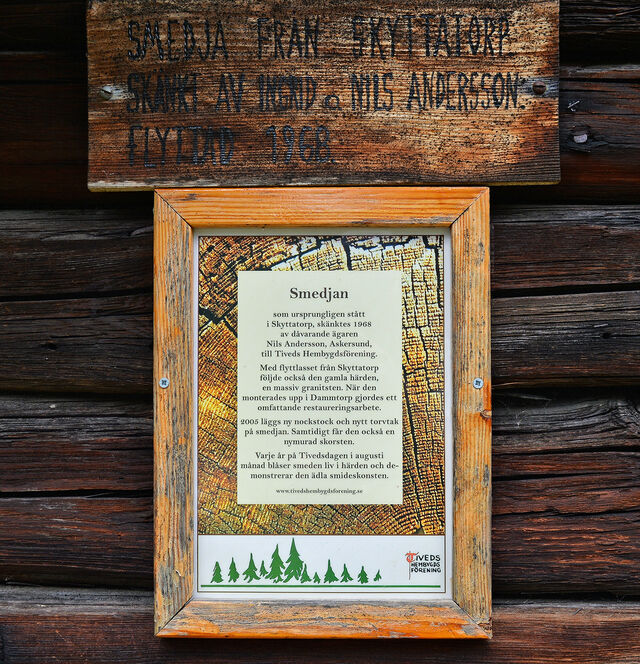 SMEDJA FRÅN SKYTTATORP
SKÄNKT AV INGRID o NILS ANDERSSON.
FLYTTAD 1968.
Smedjan
som ursprungligen stått
i Skyttatorp, skänktes 1968
av dåvarande ägaren
Nils Andersson, Askersund,
till Tiveds Hembygdsförening.
Med flyttlasset från Skyttatorp
följde också den gamla härden,
en massiv granitsten. När den
monterades upp i Dammtorp gjordes ett
omfattande restaureringsarbete.
2005 läggs ny nockstock och nytt torvtak
på smedjan. Samtidigt får den också en
nymurad skorsten.
Varje år på Tivedsdagen i augusti
månad blåser smeden liv i härden och de-
monstrerar den ädla smideskonsten.
www.tivedshembygdsforening.se
TIVEDS
HEMBYGDS
FÖRENING